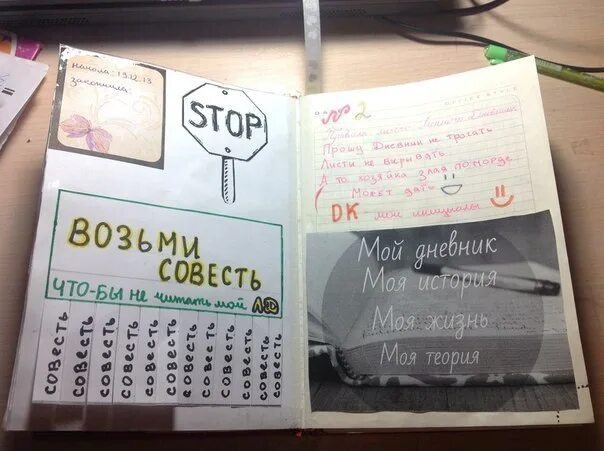 начала: 19.12.13
закончила:
STOP
ВОЗЬМИ
СОВЕСТЬ
ЧТО-БЫ не читать мой ЛД
совесть
совесть
совесть
совесть
совесть
совесть
совесть
совесть
совесть
совесть
совесть
OFFICE STYLE
№ 2
Правила моего Личного Дневника
Прошу Дневник не трогать
Листы не вырывать
А то хозяйка злая по морде
Может дать
DK - мои инициалы
Мой дневник
Моя история
Моя жизнь
Моя теория